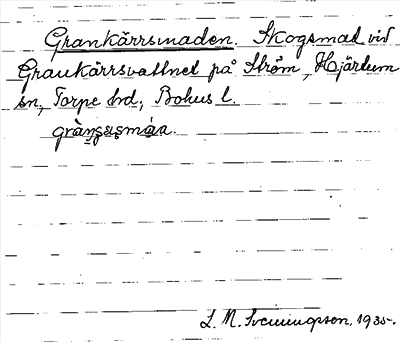 Grankärrsmaden. Skogsmad vid
Grankärrsvattnet på Ström, Hjärtum
sn, Torpe hd, Bohus l.
L. M. Svenungsson, 1935.